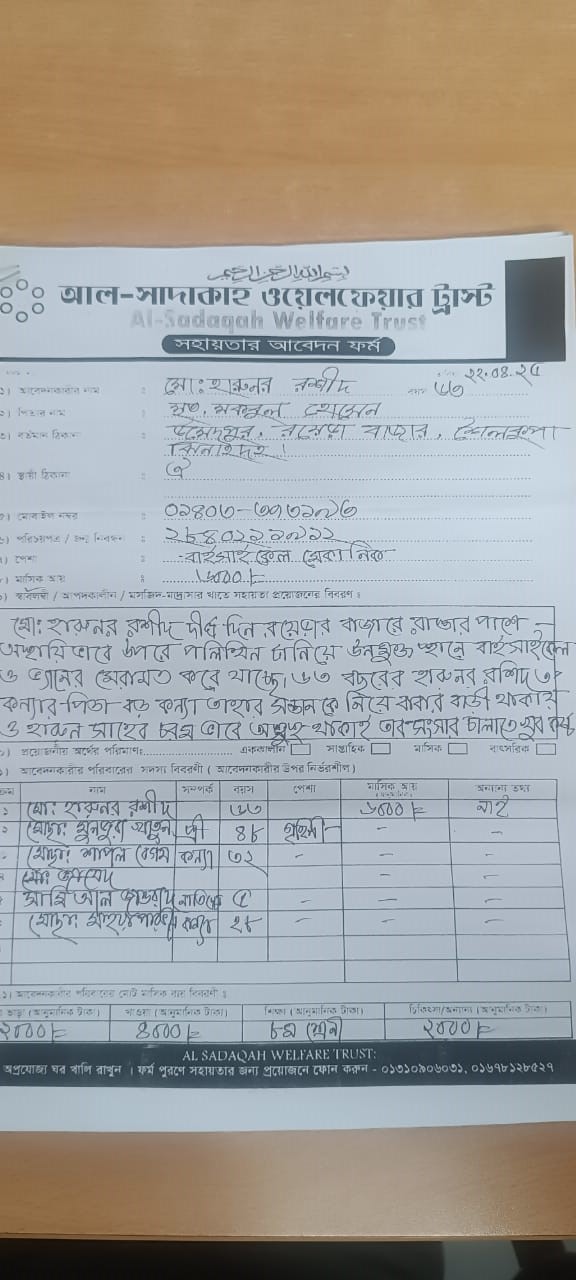 আল-সাদাকাহ ওয়েলফেয়ার ট্রাস্ট
Al-Sadaqah Welfare Trust
সহায়তার আবেদন ফর্ম
২২.০৪.২৫
১) আবেদনকারীর নাম : মো: হারুনর রশীদ বয়স ৬৩
২) পিতার নাম : মৃত. মকবুল হোসেন
৩) বর্তমান ঠিকানা : রয়েড়া বাজার, শৈলকুপা
ঝিনাইদহ।
৪) স্থায়ী ঠিকানা : ঐ
৫) মোবাইল নম্বর :
পরিচয়পত্র / জন্ম নিবন্ধন :
পেশা : বাইসাইকেল মেকানিক
মাসিক আয় : ৬০০০/=
স্বাবলম্বী / আপদকালীন / মসজিদ-মাদ্রাসার খাতে সহায়তা প্রয়োজনের বিবরণ :
মো: হারুনর রশীদ দীর্ঘ দিন রয়েড়ার বাজারে রাস্তার পাশে
অস্থায়ি ভাবে উপরে পলিথিন টানিয়ে উনমুক্ত স্থানে বাইসাইকেল
ও ভ্যানের মেরামত করে যাচ্ছে। ৬৩ বছরের হারুনর রশিদ ৩
কন্যার পিতা বড় কন্যা তাহার সন্তান কে নিয়ে বাবার বাড়ী থাকায়
ও হারুন সাহেব চরম ভাবে অসুস্থ থাকাই তার সংসার চালাতে খুব কষ্ট
প্রয়োজনীয় অর্থের পরিমাণ: এককালীন সাপ্তাহিক মাসিক বাৎসরিক
আবেদনকারীর পরিবারের সদস্য বিবরণী ( আবেদনকারীর উপর নির্ভরশীল )
নাম সম্পর্ক বয়স পেশা মাসিক আয় অন্যান্য তথ্য
১ মো: হারুনর রশীদ ৬৩ ৬০০০/= নাই
২ মোছা: খাতুন স্ত্রী ৪৮ গৃহিনী - -
মোছা: বেগম কন্যা ৩২ - - -
মো: - -
৫ - - -
মোছা: কন্যা ১৮ - - -
আবেদনকারীর পরিবারের মোট মাসিক ব্যয় বিবরণী :
ভাড়া (আনুমানিক টাকা) খাওয়া (আনুমানিক টাকা) শিক্ষা (আনুমানিক টাকা) চিকিৎসা/অন্যান্য (আনুমানিক টাকা)
২০০০/= ৪০০০/= ৮ম শ্রেনী ২০০০/=
AL SADAQAH WELFARE TRUST:
অপ্রযোজ্য ঘর খালি রাখুন । ফর্ম পুরণে সহায়তার জন্য প্রয়োজনে ফোন করুন - ০১৩১০৯০৬০৩১, ০১৬৭৮১২৮৫২৭